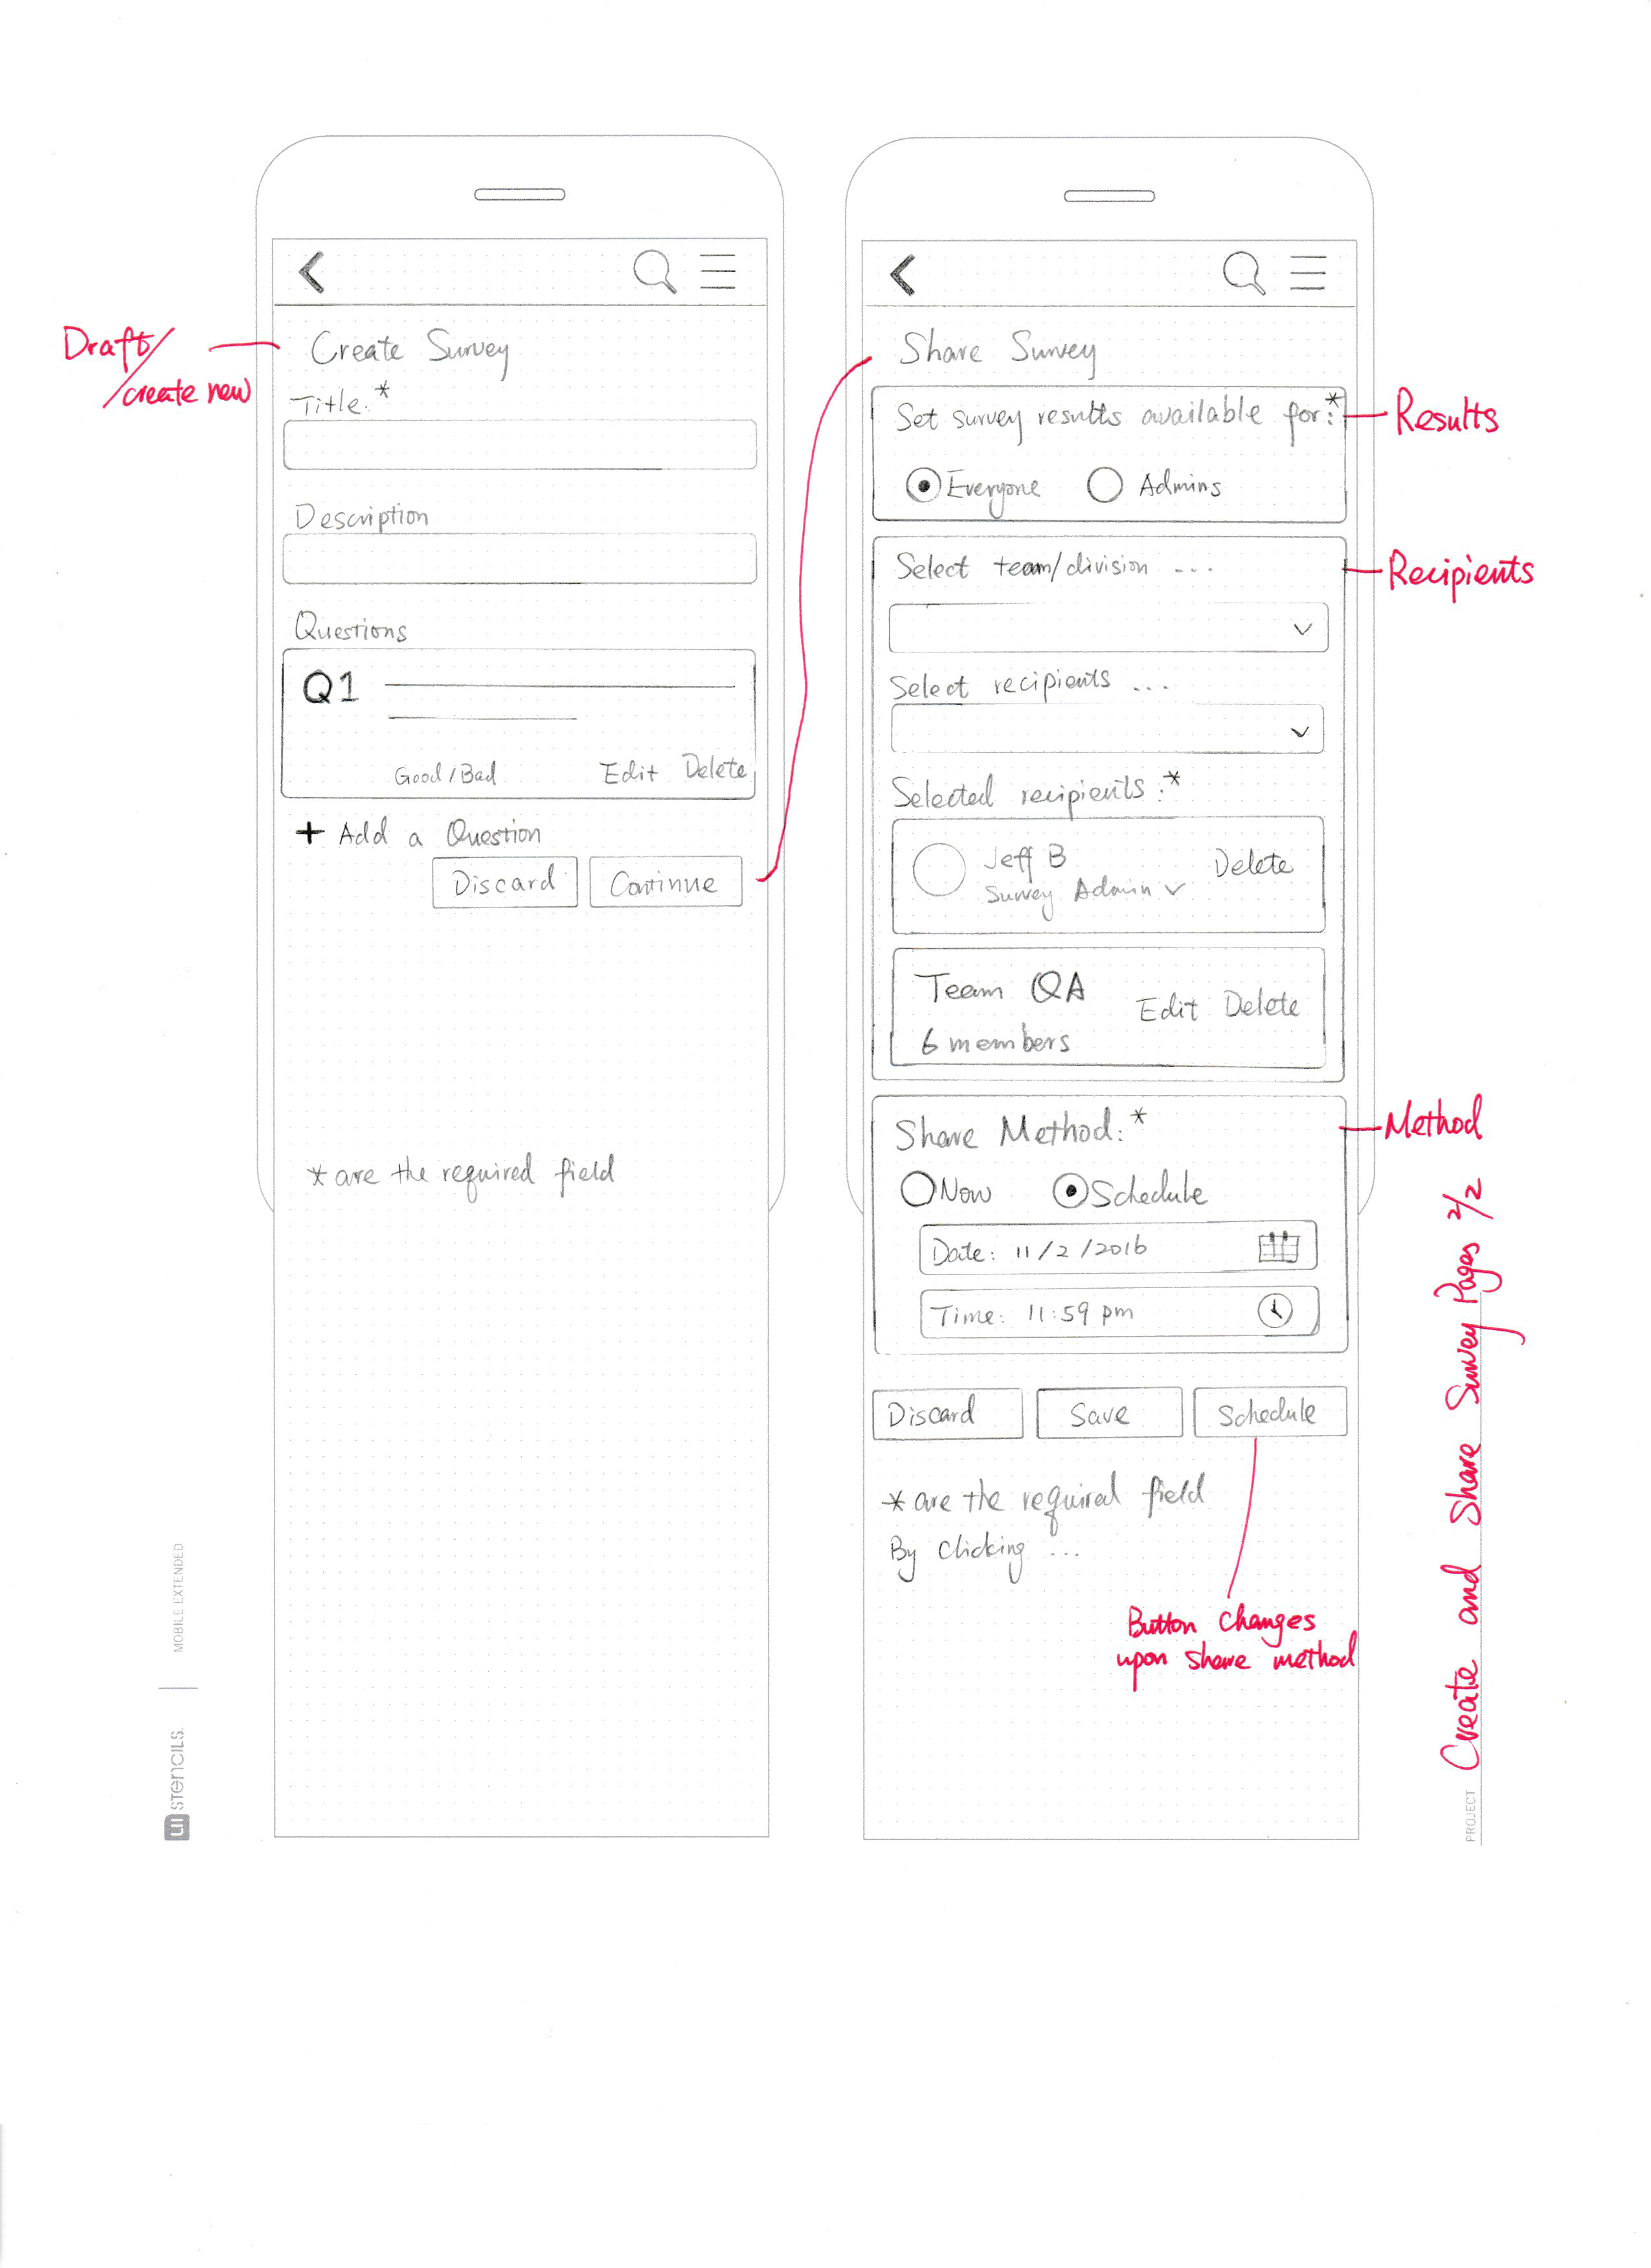 Draft/
/create new
Create Survey
Title:*
Description
Questions
Q1
Good / Bad Edit Delete
+ Add a Question
Discard Continue
* are the required field
Share Survey
Set survey results available for:*
Everyone Admins
Select team/division ...
Select recipients ...
Selected recipients:*
Jeff B
Survey Admin
Delete
Team QA
6 members
Edit Delete
Share Method:*
Now Schedule
Date: 11/2/2016
Time: 11:59 pm
Discard Save Schedule
* are the required field
By Clicking ...
Results
Recipients
Method
Button changes
upon share method
PROJECT Create and Share Survey Pages 2/2
UI STENCILS.
MOBILE EXTENDED